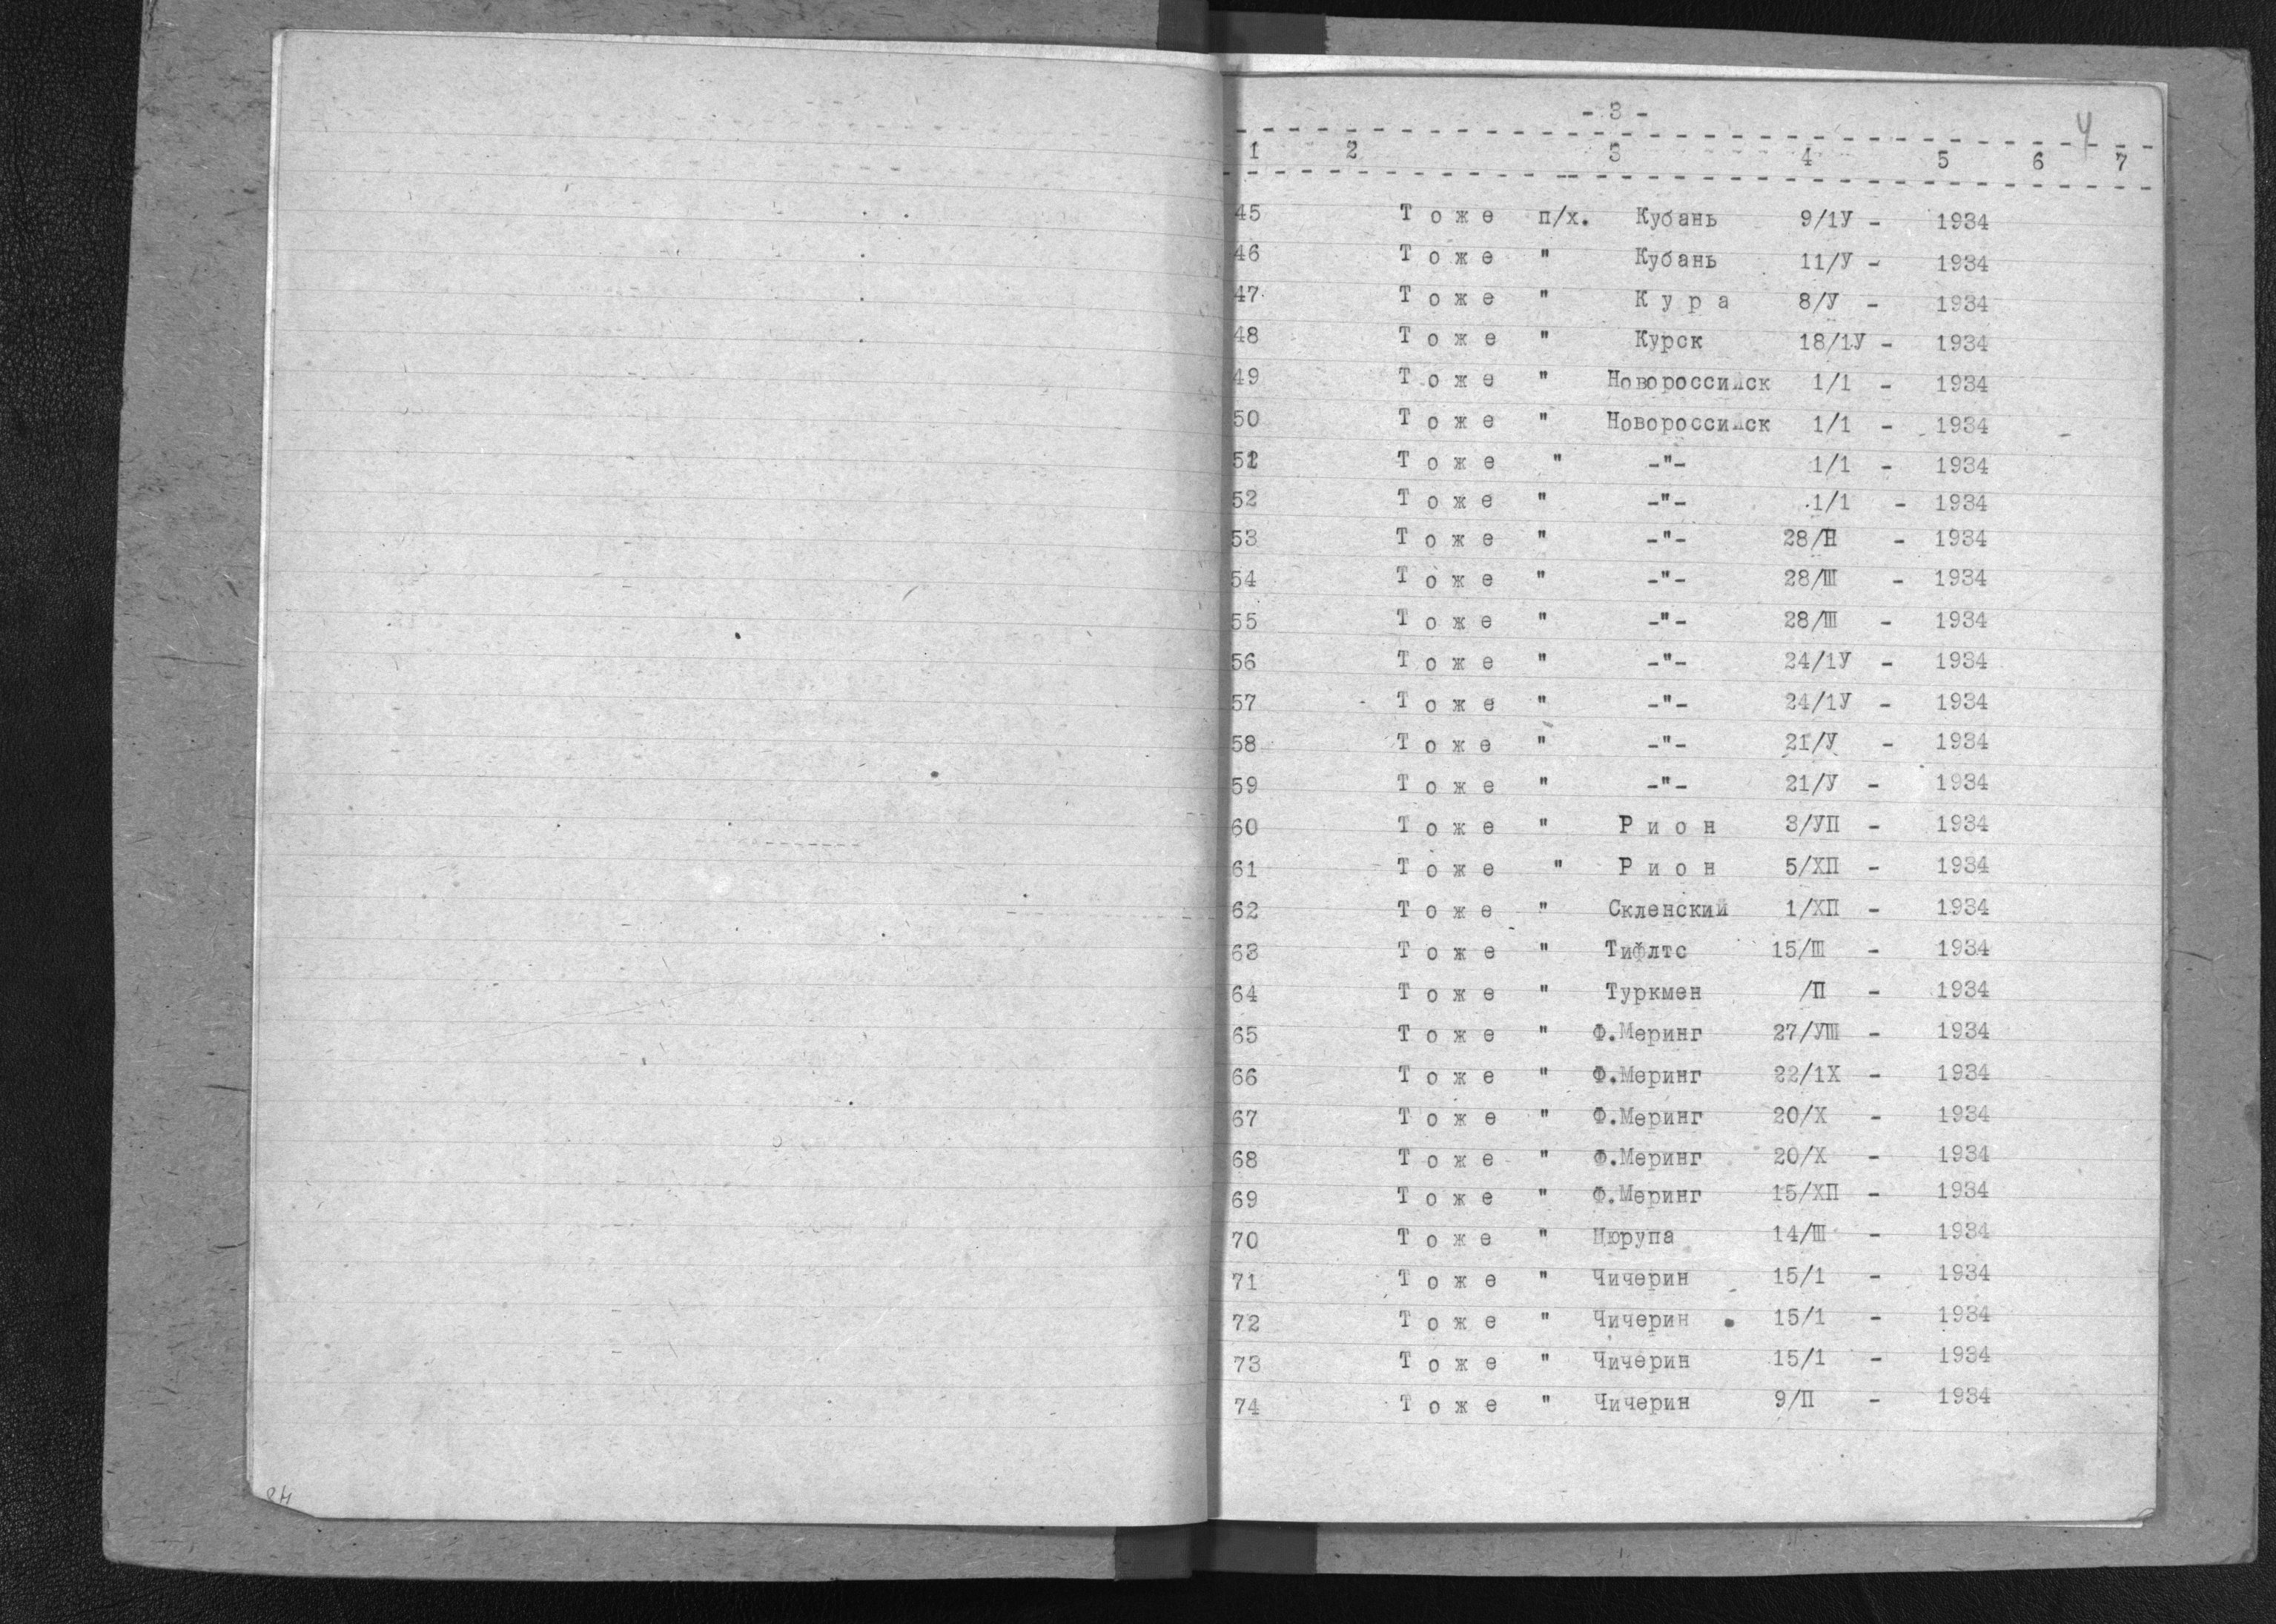 - 3 -
4
1 2 3 4 5 6 7
45 Тоже п/х. Кубань 9/1У - 1934
46 Тоже " Кубань 11/У - 1934
47 Тоже " Кура 8/У - 1934
48 Тоже " Курск 18/1У - 1934
49 Тоже " Новороссийск 1/1 - 1934
50 Тоже " Новороссийск 1/1 - 1934
51 Тоже " -"- 1/1 - 1934
52 Тоже " -"- 1/1 - 1934
53 Тоже " -"- 28/П - 1934
54 Тоже " -"- 28/Ш - 1934
55 Тоже " -"- 28/Ш - 1934
56 Тоже " -"- 24/1У - 1934
57 Тоже " -"- 24/1У - 1934
58 Тоже " -"- 21/У - 1934
59 Тоже " -"- 21/У - 1934
60 Тоже " Рион 3/УП - 1934
61 Тоже " Рион 5/ХП - 1934
62 Тоже " Скленский 1/ХП - 1934
63 Тоже " Тифлтс 15/Ш - 1934
64 Тоже " Туркмен /П - 1934
65 Тоже " Ф.Меринг 27/УШ - 1934
66 Тоже " Ф.Меринг 22/1Х - 1934
67 Тоже " Ф.Меринг 20/Х - 1934
68 Тоже " Ф.Меринг 20/Х - 1934
69 Тоже " Ф.Меринг 15/ХП - 1934
70 Тоже " Цюрупа 14/Ш - 1934
71 Тоже " Чичерин 15/1 - 1934
72 Тоже " Чичерин 15/1 - 1934
73 Тоже " Чичерин 15/1 - 1934
74 Тоже " Чичерин 9/П - 1934